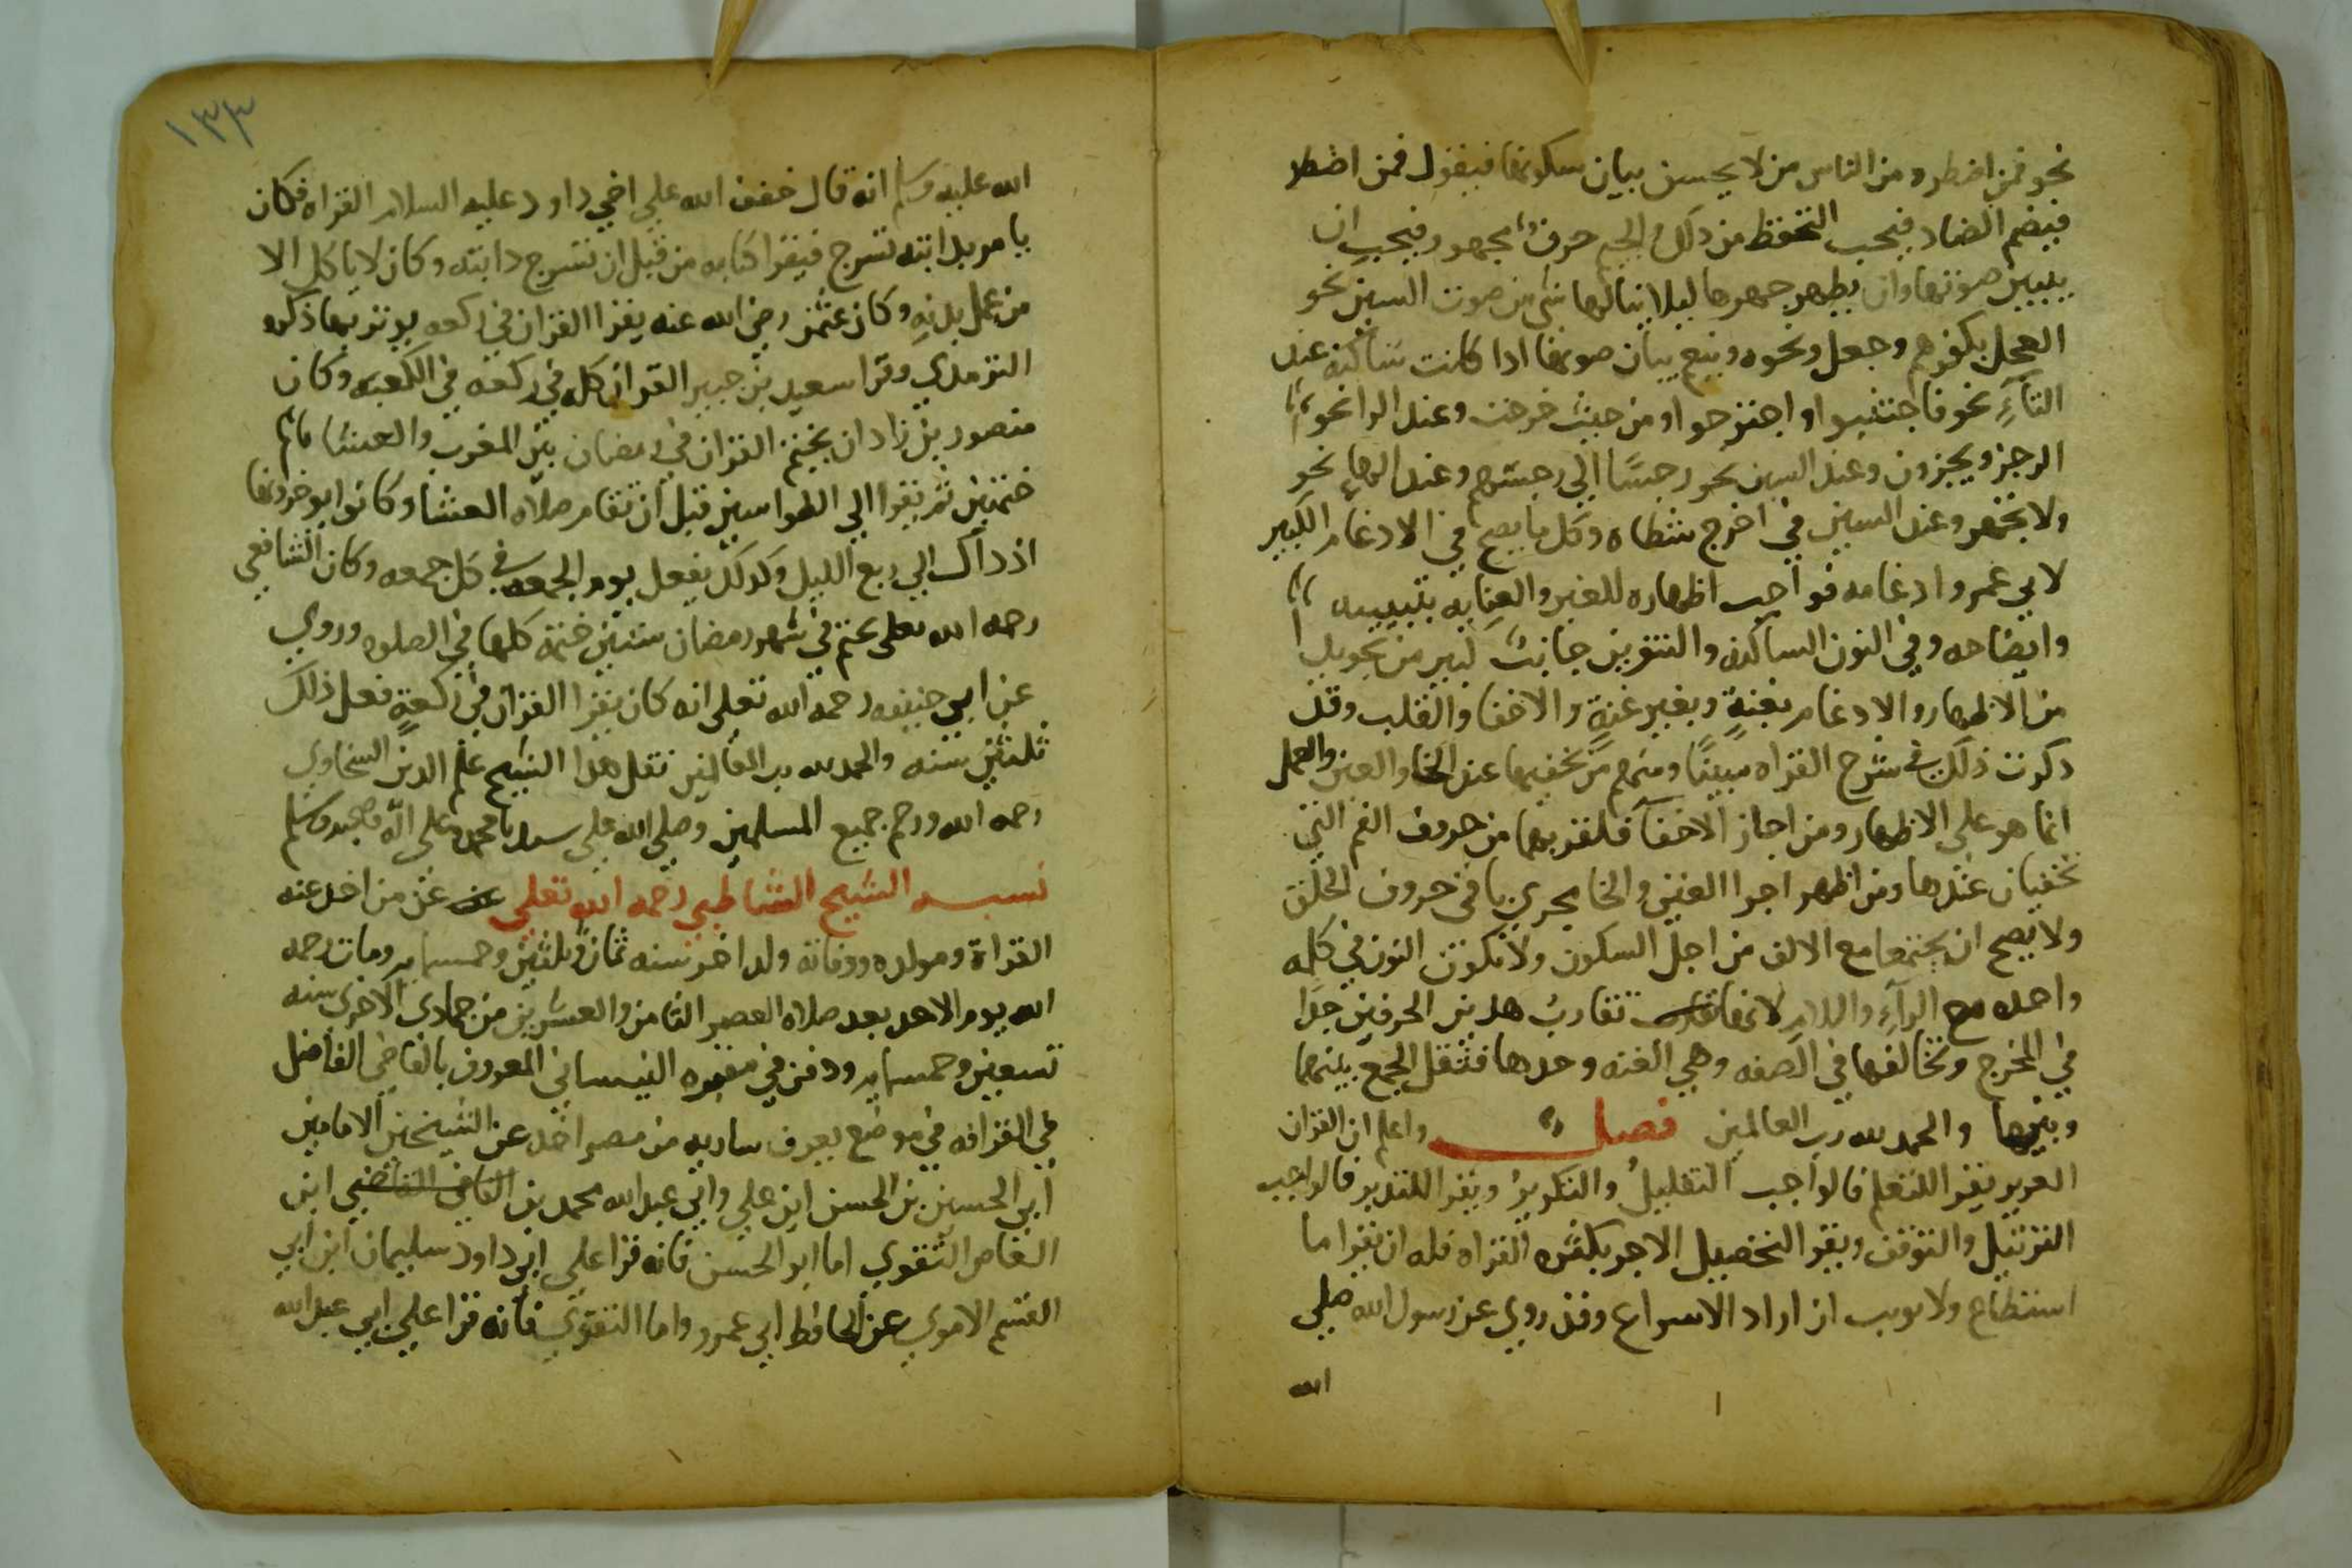 نحو فمن اضطر ومن الناس من لا يحسن بيان سكونها فيقول فمن اضطر
فيضم الضاد فيجب التحفظ من ذلك والجيم حرف مجهور فيجب ان
يبين صوتها وان يظهر جهرها ليلا ينالها شي من صوت السين نحو
العجل بكفرهم وجعل ونحوه وينبع بيان صوتها اذا كانت ساكنه عند
التآءِ نحو فاجتنبوا او اجترحوا ومن حيث خرجت وعند الزا نحو
الرجز ويجزون وعند السين نحو رجسًا الى رجسهم وعند الهاءِ نحو
ولا تجهر وعند الشين في اخرج شطاه وكل ما يصح في الادغام الكبير
لابي عمرو ادغامه فواجب اظهاره للغير والعناية بتبيينه
وايضاحه وفي النون الساكنه والتنوين جانب كبير من تجويد
من الاظهار والادغام بغنةٍ وبغير غنةٍ والاخفا والقلب وقد
ذكرت ذلك في شرح القراه مبينًا ومنهم من يخفيها عند الخا والغين والعمل
انما هو على الاظهار ومن اجاز الاخفآ فلقربهما من حروف الفم التي
تخفيان عندها ومن اظهر اجرا الغين والخا مجرى باقي حروف الحلق
ولا يصح ان يجتمعا مع الالف من اجل السكون ولا تكون النون في كلمه
واحده مع الرآءِ واللام لانها تقارب هذين الحرفين جدًا
في المخرج وتخالفها في الصفه وهي الغنه وحدها فثقل الجمع بينهما
وبينها والحمد لله رب العالمين فصل واعلم ان القران
العزيز يقرا للتعلم فالواجب التقليلُ والتكريرُ ويقرا للتدبر فالواجب
الترتيل والتوقف ويقرا لتحصيل الاجر بكثره القراه فله ان يقرا ما
استطاع ولا يونب ان اراد الاسراع وقد روي عن رسول الله صلى
الله
١٣٣
الله عليه وسلم انه قال خفف الله على اخي داود عليه السلام القراه فكان
يامر بدابته تسرج فيقرا كتابه من قبل ان تسرج دابته وكان لا ياكل الا
من عمل يديه وكان عثمن رضي الله عنه يقرا القران في ركعه يوتر بها ذكره
الترمذي وقرا سعيد بن جبير القران كله في ركعه في الكعبه وكان
منصور بن زاذان يختم القران في رمضان بين المغرب والعشا
ختمتين ثم يقرا الي الطواسين قبل ان تقام صلاه العشا وكانوا يوخرونها
اذ ذاك الي ربع الليل وكذلك يفعل يوم الجمعه في كل جمعه وكان الشافعي
رحمه الله تعلى يختم في شهر رمضان ستين ختمة كلها في الصلوه وروي
عن ابي حنيفه رحمة الله تعلى انه كان يقرا القران في ركعةٍ فعل ذلك
ثلثين سنه والحمد لله رب العالمين نقل هذا الشيخ علم الدين السخاوي
رحمه الله ورحم جميع المسلمين وصلى الله على سيدنا محمد وعلى اله وصحبه وسلم
نسبه الشيخ الشاطبي رحمه الله تعلى عمن من اخذ عنه
القراة ومولده ووفاته ولد اخر سنه ثمان وثلثين وخمسمايه ومات رحمه
الله يوم الاحد بعد صلاه العصر الثامن والعشرين من جمادى الاخرى سنه
تسعين وخمسمايه ودفن في مقبره البيساني المعروف بالقاضي الفاضل
في القرافه في موضع يعرف بساريه من مصر اخذ عن الشيخين الامامين
ابي الحسين بن الحسن ابن علي وابي عبد الله محمد بن القاضي القاضي ابن
العاص النفوي اما ابو الحسن فانه قرا على ابي داود سليمان ابن ابي
القسم الاموي عن الحافظ ابي عمرو واما النفوي فانه قرا على ابي عبد الله